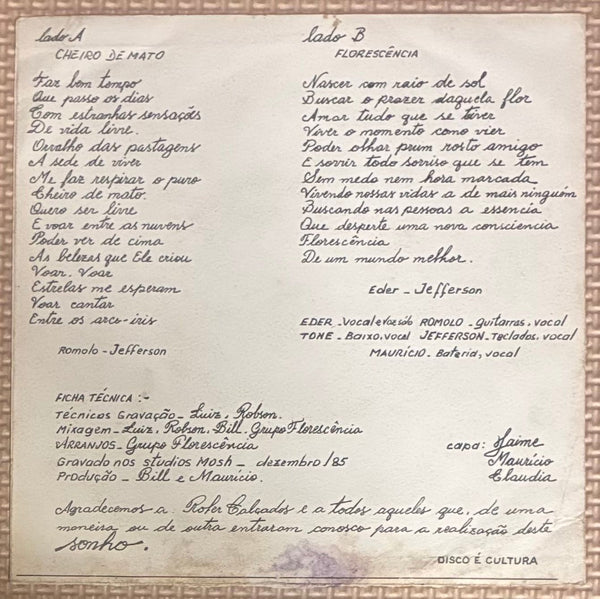 lado A
CHEIRO DE MATO
Faz bem tempo
Que passo os dias
Com estranhas sensações
De vida livre.
Orvalho das pastagens
A sede de viver
Me faz respirar o puro
Cheiro de mato.
Quero ser livre
E voar entre as nuvens
Poder ver de cima
As belezas que Ele criou
Voar. Voar
Estrelas me esperam
Voar cantar
Entre os arco-iris
Romolo - Jefferson
lado B
FLORESCÊNCIA
Nascer com raio de sol
Buscar o prazer daquela flor
Amar tudo que se tiver
Viver o momento como vier
Poder olhar prum rosto amigo
E sorrir todo sorriso que se tem
Sem medo nem hora marcada
Vivendo nossas vidas a de mais ninguém
Buscando nas pessoas a essencia
Que desperte uma nova consciencia
Florescência
De um mundo melhor.
Eder - Jefferson
EDER - Vocal e Violão ROMOLO - Guitarras, vocal
TONE - Baixo, vocal JEFFERSON - Teclados, vocal
MAURÍCIO - Bateria, vocal
FICHA TÉCNICA :-
Técnicos Gravação - Luiz, Robson.
Mixagem - Luiz, Robson, Bill, Grupo Florescência
ARRANJOS - Grupo Florescência
Gravado nos studios Mosh - dezembro/85
Produção - Bill e Maurício.
capa: Jaime
Maurício
Claudia
Agradecemos a Profer Calçados e a todos aqueles que, de uma
maneira ou de outra entraram conosco para a realização deste
sonho.
DISCO É CULTURA